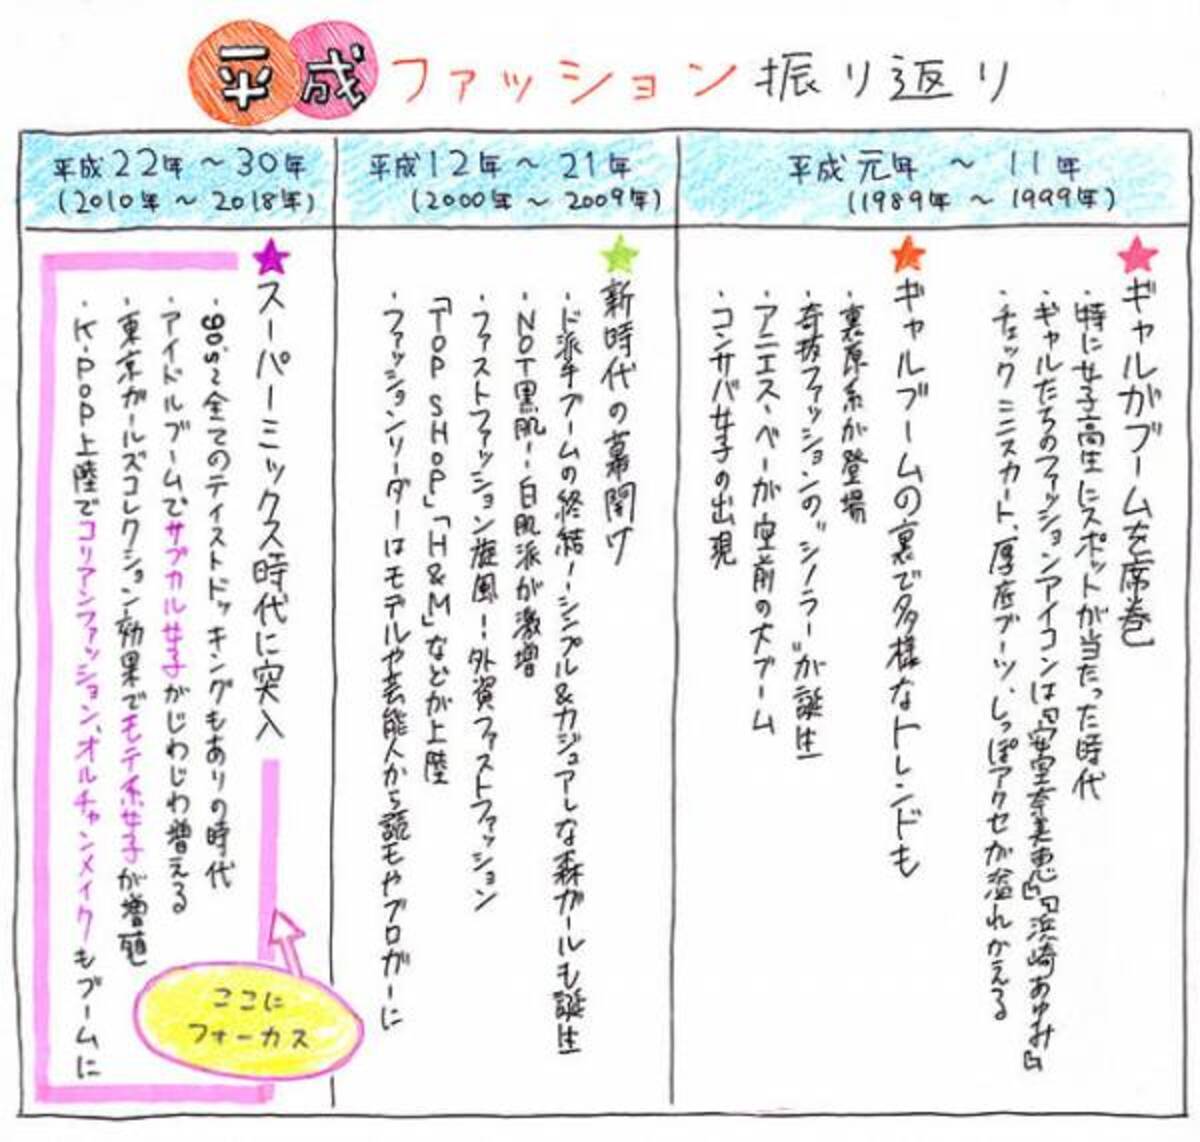 平成ファッション振り返り
平成元年 〜 11年
(1989年 〜 1999年)
★ギャルがブームを席巻
・特に女子高生にスポットが当たった時代
・ギャルたちのファッションアイコンは「安室奈美恵」「浜崎あゆみ」
・チェックミニスカート、厚底ブーツ、しっぽアクセが溢れかえる
★ギャルブームの裏で多様なトレンドも
・裏原系が登場
・奇抜ファッションの"シノラー"が誕生
・アニエス・ベーが空前の大ブーム
・コンサバ女子の出現
平成12年 〜 21年
(2000年 〜 2009年)
★新時代の幕開け
・ド派手ブームの終結!シンプル&カジュアルな森ガールも誕生
・NOT黒肌!白肌派が激増
・ファストファッション旋風!外資ファストファッション
「TOP SHOP」「H&M」などが上陸
・ファッションリーダーはモデルや芸能人から読モやブロガーに
平成22年 〜 30年
(2010年 〜 2018年)
★スーパーミックス時代に突入
・90s'〜全てのテイストドッキングもありの時代
・アイドルブームでサブカル女子がじわじわ増える
・東京ガールズコレクション効果でモテ系女子が増殖
・K-POP上陸でコリアンファッション、オルチャンメイクもブームに
ここに
フォーカス